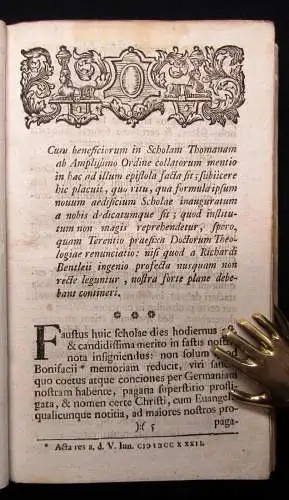 Cum beneficiorum in Scholam Thomanam
ab Amplissimo Ordine collatorum mentio
in hac ad illum epistola facta sit; subiicere
hic placuit, quo ritu, qua formula ipsum
nouum aedificium Scholae inauguratum
a nobis dedicatumque sit; quod institu-
tum non magis reprehendetur, spero,
quam Terentio praefixa Doctorum Theo-
logiae renunciatio: nisi quod a Richardi
Bentleii ingenio profecta nusquam non
recte leguntur, nostra forte plane debe-
bant contineri.
* * *
Faustus huic scholae dies hodiernus
& candidissima merito in fastis nostris
nota insigniendus: non solum
Bonifacii * memoriam reducit, viri
quo coetus atque conciones per Germaniam
nostram habente, pagana superstitio profli-
gata, & nomen certe Christi, cum Euangelii
qualicunque notitia, ad maiores nostros pro-
):( 5 paga-
* Acta res a. d. V. Iun. CIƆIƆCCXXXII.